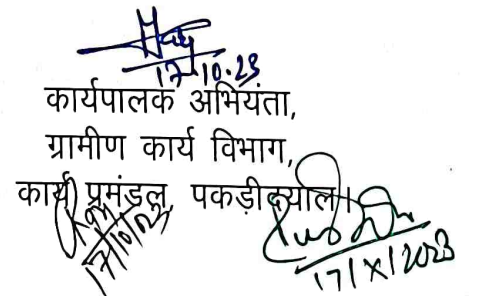 17.10.23
कार्यपालक अभियंता,
ग्रामीण कार्य विभाग,
कार्य प्रमंडल, पकड़ीदयाल।
17/10/23
17/X/2023